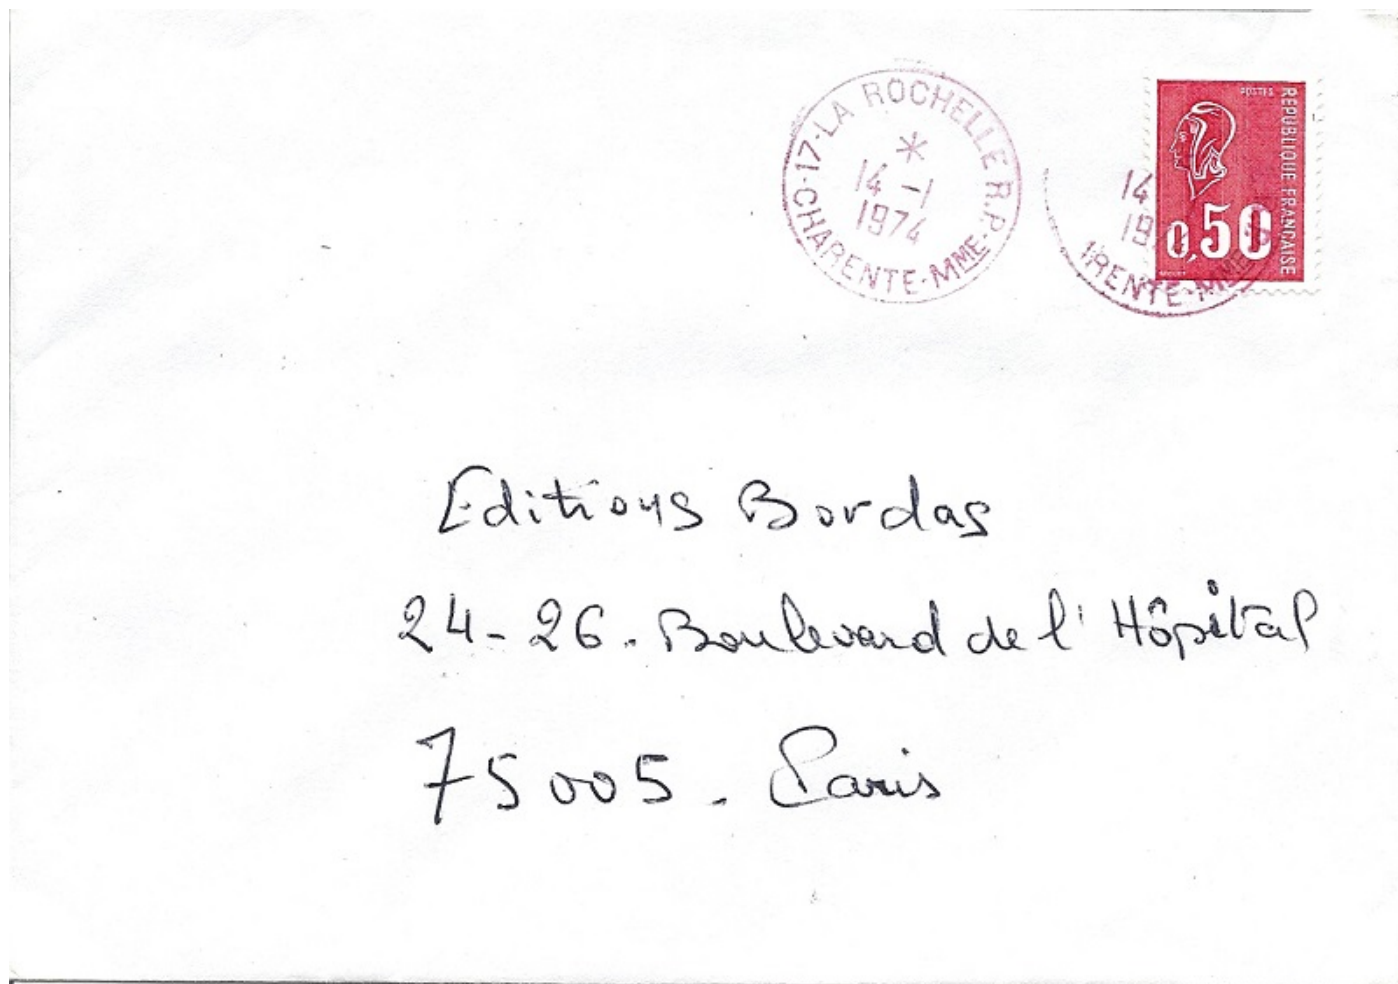 17-LA ROCHELLE R.P.
*
14 -1
1974
CHARENTE-MME
14
19
RENTE-MME
POSTES
REPUBLIQUE FRANÇAISE
0,50
Editions Bordas
24-26. Boulevard de l'Hôpital
75005. Paris